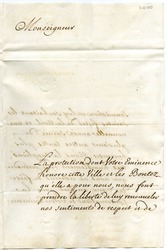 Monseigneur
La protection dont Votre Eminence
honore cette Ville et les Bontez
qu'elle a pour nous, nous font
prendre la liberté de luy renouveler
nos sentiments de respect et de